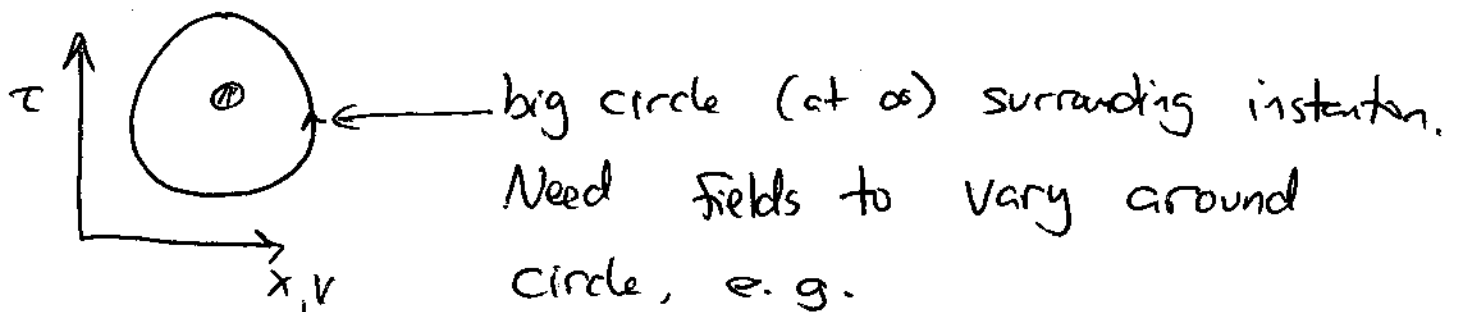 τ
big circle (at ∞) surrounding instanton.
Need fields to vary around
x, circle, e.g.